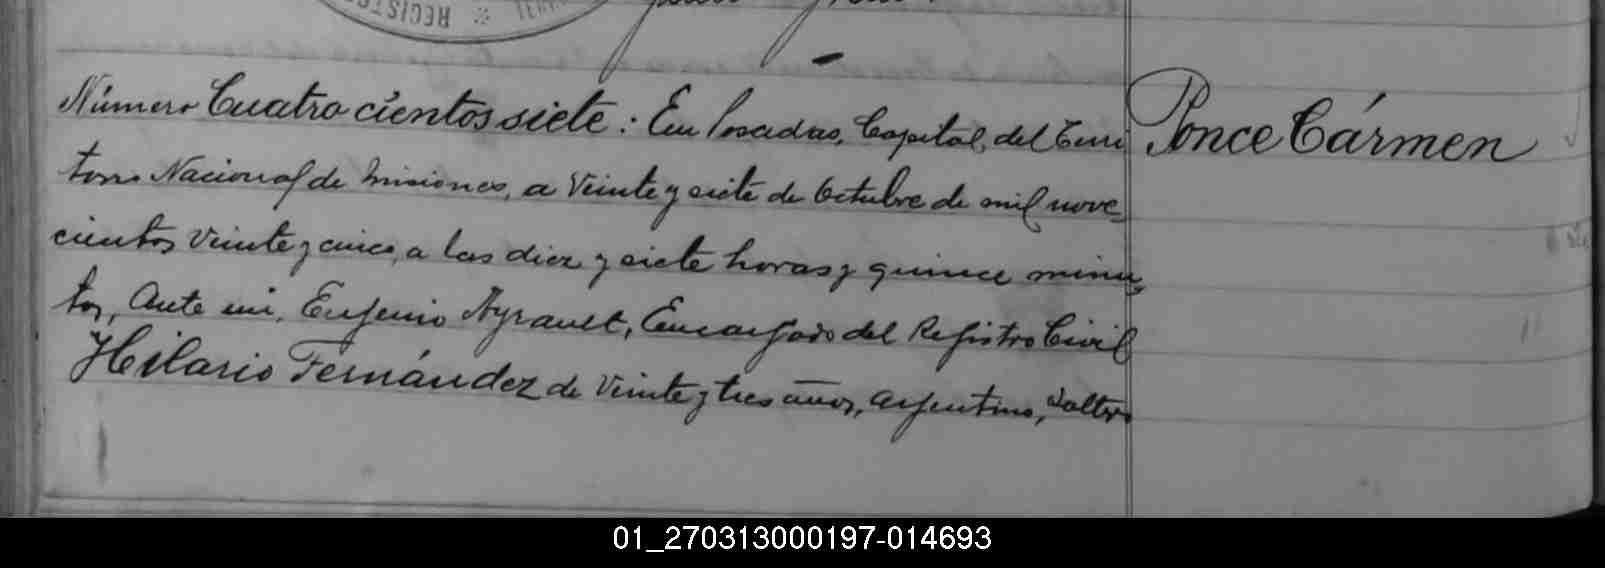 REGISTRO
Número Cuatrocientos siete: En Posadas, Capital, del Terri
torio Nacional de Misiones, a Veinte y siete de Octubre de mil nove-
cientos Veinte y cinco, a las diez y siete horas y quince minu-
tos, Ante mi, Eugenio Ayrault, Encargado del Registro Civil
Hilario Fernández de Veinte y tres años, argentino, soltero
Ponce Cármen
01_270313000197-014693